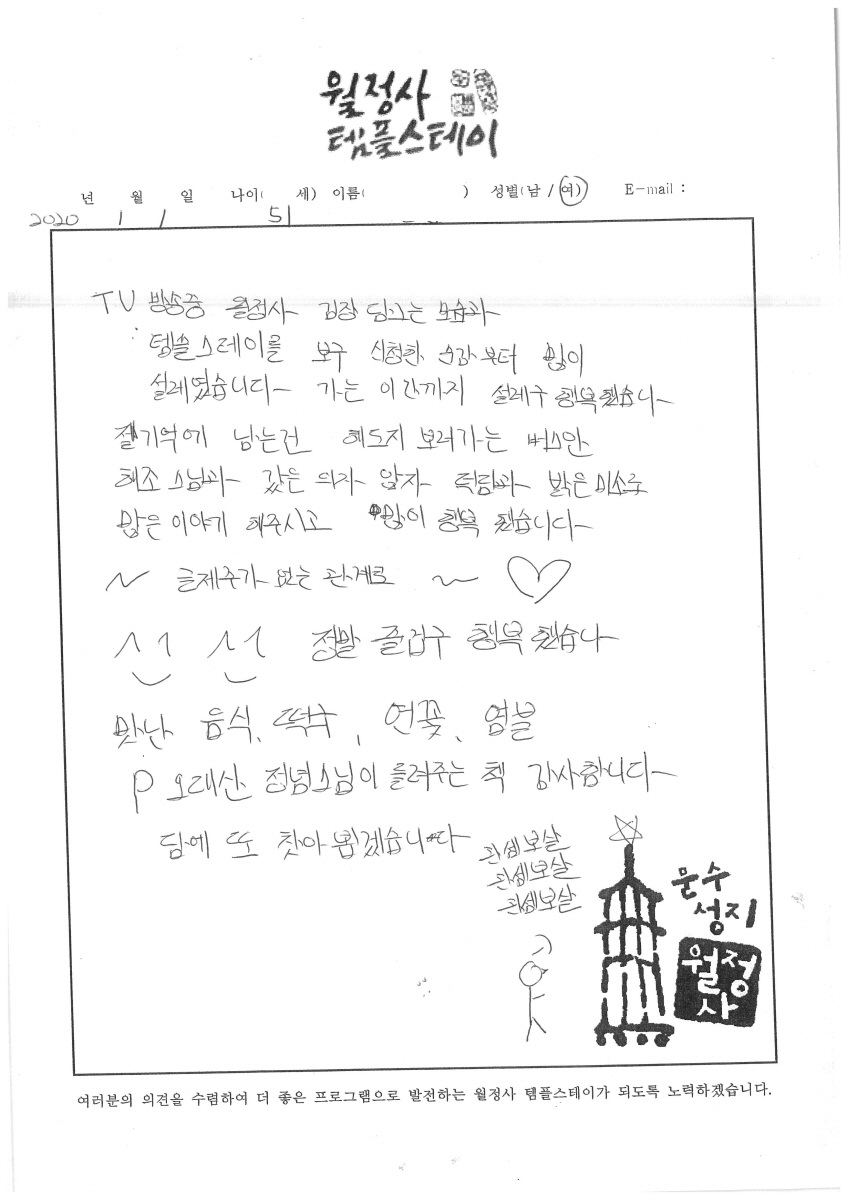 월정사
템플스테이
년 월 일 나이( 세) 이름( ) 성별(남 / 여) E-mail :
2020 1 1 51
TV 방송중 월정사 김장 담그는 모습과
템플스테이를 보구 신청한 순간부터 많이
설레였습니다~ 가는 이간까지 설레구 행복했습니~
젤기억에 남는건 해도지 보러가는 버스안
해조 스님과~ 같은 의자 앉자 덕담과~ 밝은 미소로
많은 이야기 해주시고 많이 행복 했습니다~
~ 글제주가 없는 관계로 ~ ♡
정말 즐겁구 행복했습니~
맛난 음식, 떡국, 연꽃, 염불
P 오대산 정념스님이 들려주는 책 감사합니다~
담에 또 찾아뵙겠습니다
관세보살
관세보살
관세보살
문수
성지
월정
사
여러분의 의견을 수렴하여 더 좋은 프로그램으로 발전하는 월정사 템플스테이가 되도록 노력하겠습니다.